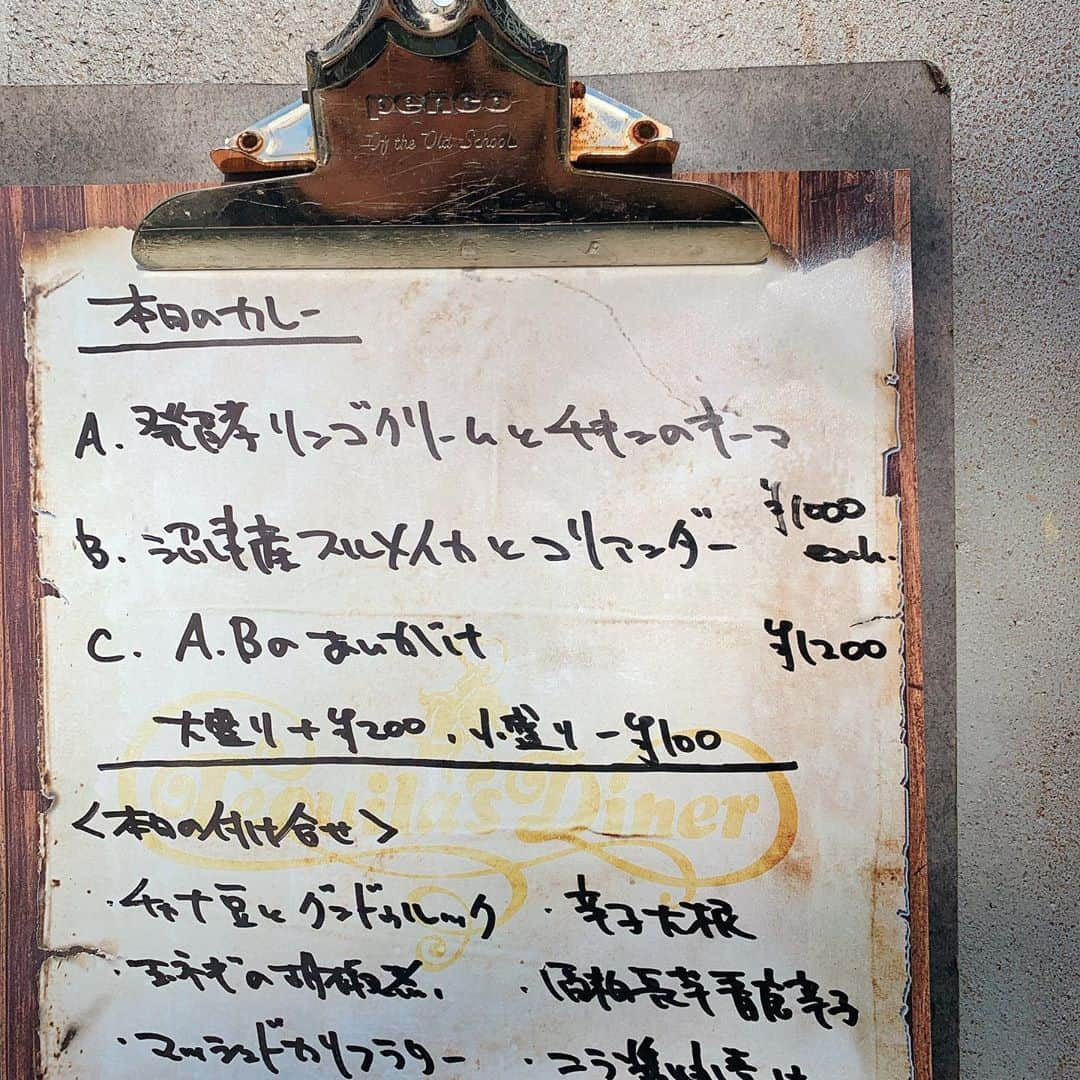 penco
By the Old School
本日のカレー
A. 発酵リンゴクリームとチキンのキーマ
B. 沼津産スルメイカとコリアンダー
¥1000
each.
C. A.Bのあいがけ ¥1200
大盛り+¥200、小盛り-¥100
Tequila's Diner
<本日の付け合せ>
・チャナ豆とグンドゥルック ・辛子大根
・玉ネギの胡椒煮 ・青唐辛子
・マッシュドカリフラワー